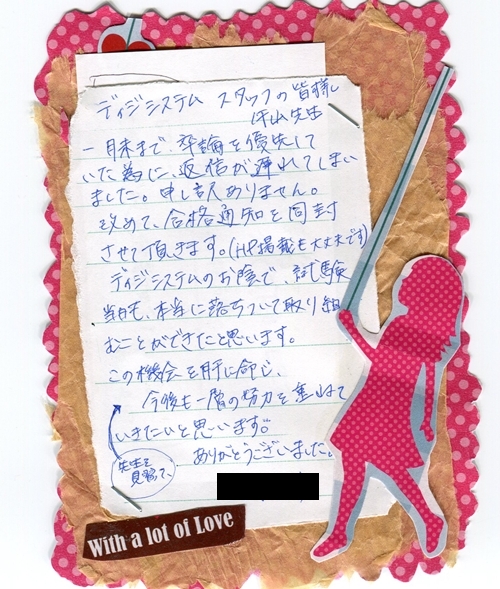 ディジシステム スタッフの皆様
牛山先生
一月末まで、卒論を優先して
いた為に、返信が遅れてしまい
ました。申し訳ありません。
改めて、合格通知を同封
させて頂きます。(HP掲載も大丈夫です)
ディジシステムのお陰で、試験
当日も、本当に落ちついて取り組
むことができたと思います。
この機会を肝に命じ、
今後も一層の努力を重ねて
いきたいと思います。
先生を
見習って、
ありがとうございました。
With a lot of Love